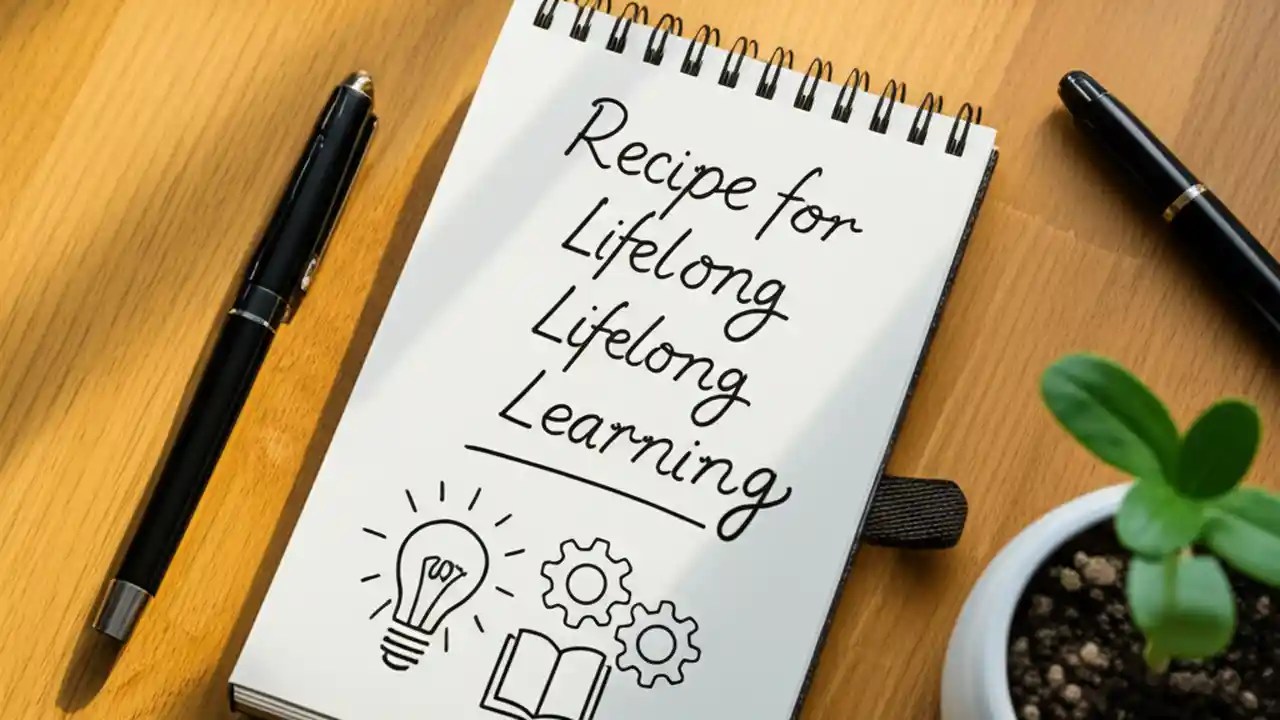 Recipe for
Lifelong
Lifelong
Learning